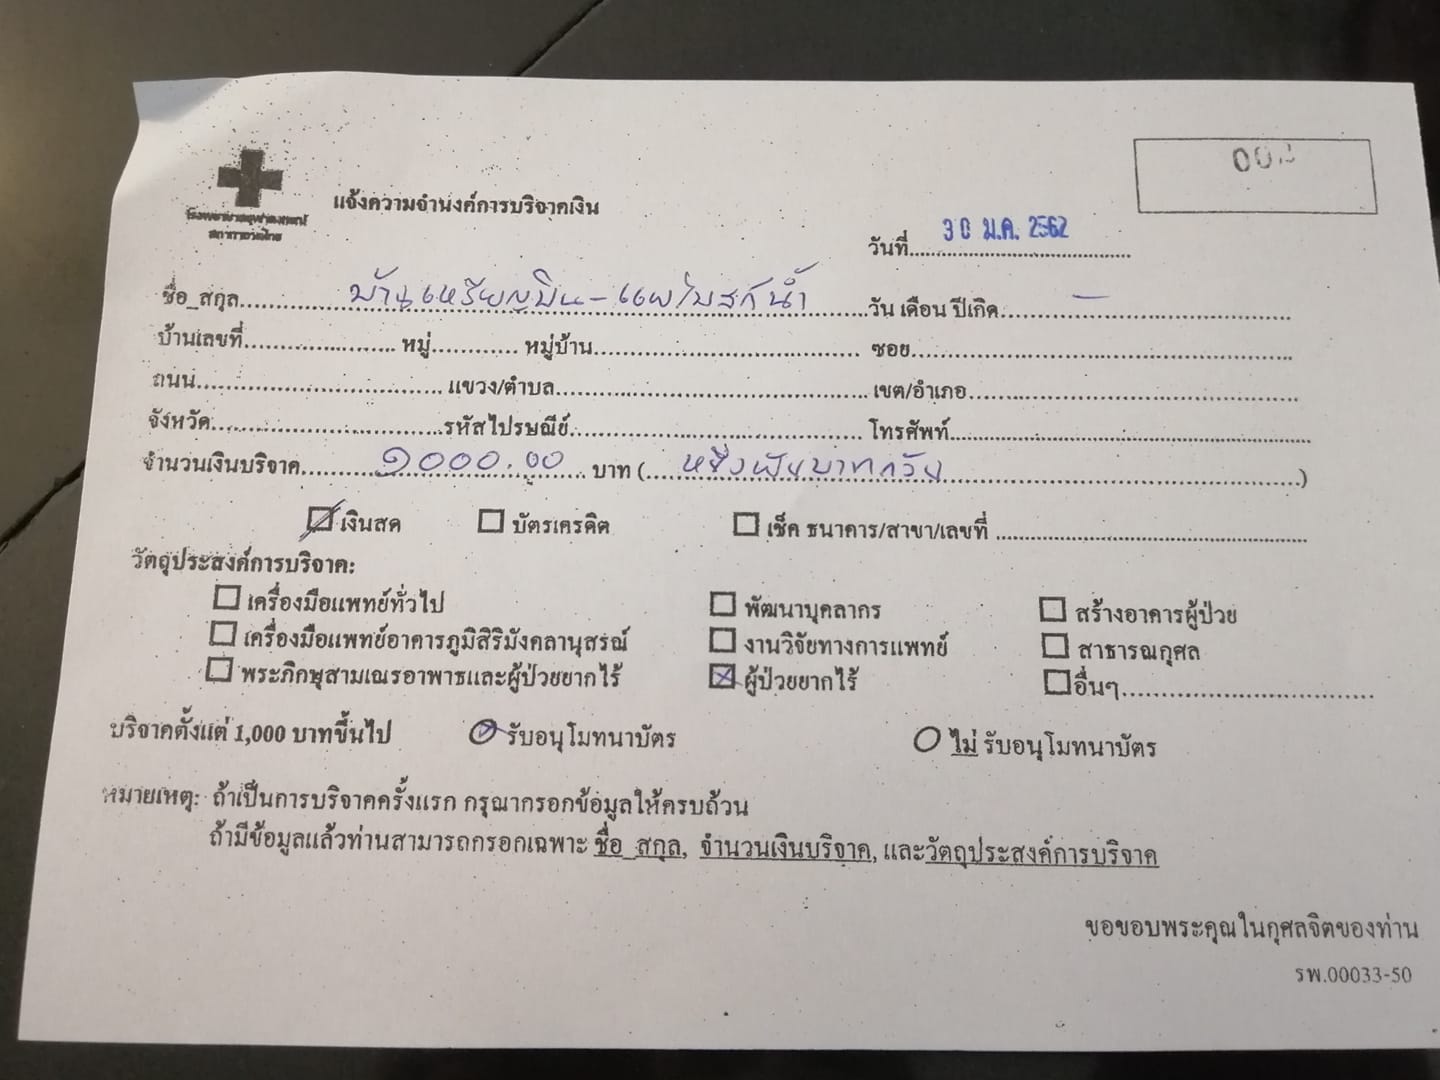 00
โรงพยาบาลจุฬาลงกรณ์
สภากาชาดไทย
แจ้งความจำนงค์การบริจาคเงิน
วันที่ 30 ม.ค. 2562
ชื่อ_สกุล บ้านเหรียญบิน-แพใบสก๊น้ำ วัน เดือน ปีเกิด -
บ้านเลขที่ หมู่ หมู่บ้าน ซอย
ถนน แขวง/ตำบล เขต/อำเภอ
จังหวัด รหัสไปรษณีย์ โทรศัพท์
จำนวนเงินบริจาค ๑๐๐๐.๐๐ บาท ( หนึ่งพันบาทถ้วน )
เงินสด บัตรเครดิต เช็ค ธนาคาร/สาขา/เลขที่
วัตถุประสงค์การบริจาค:
เครื่องมือแพทย์ทั่วไป พัฒนาบุคลากร สร้างอาคารผู้ป่วย
เครื่องมือแพทย์อาคารภูมิสิริมังคลานุสรณ์ งานวิจัยทางการแพทย์ สาธารณกุศล
พระภิกษุสามเณรอาพาธและผู้ป่วยยากไร้ ผู้ป่วยยากไร้ อื่นๆ
บริจาคตั้งแต่ 1,000 บาทขึ้นไป รับอนุโมทนาบัตร ไม่ รับอนุโมทนาบัตร
หมายเหตุ: ถ้าเป็นการบริจาคครั้งแรก กรุณากรอกข้อมูลให้ครบถ้วน
ถ้ามีข้อมูลแล้วท่านสามารถกรอกเฉพาะ ชื่อ_สกุล, จำนวนเงินบริจาค, และวัตถุประสงค์การบริจาค
ขอขอบพระคุณในกุศลจิตของท่าน
รพ.00033-50